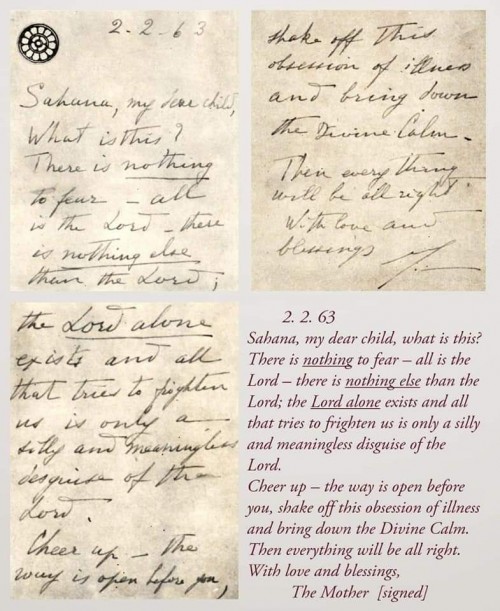 2-2-63
Sahana, my dear child,
What is this?
There is nothing
to fear – all
is the Lord – there
is nothing else
than the Lord;
the Lord alone
exists and all
that tries to frighten
us is only a
silly and meaningless
disguise of the
Lord.
Cheer up – the
way is open before you,
shake off this
obsession of illness
and bring down
the Divine Calm.
Then everything
will be all right
With love and
blessings
2. 2. 63
Sahana, my dear child, what is this?
There is nothing to fear – all is the
Lord – there is nothing else than the
Lord; the Lord alone exists and all
that tries to frighten us is only a silly
and meaningless disguise of the
Lord.
Cheer up – the way is open before
you, shake off this obsession of illness
and bring down the Divine Calm.
Then everything will be all right.
With love and blessings,
The Mother [signed]